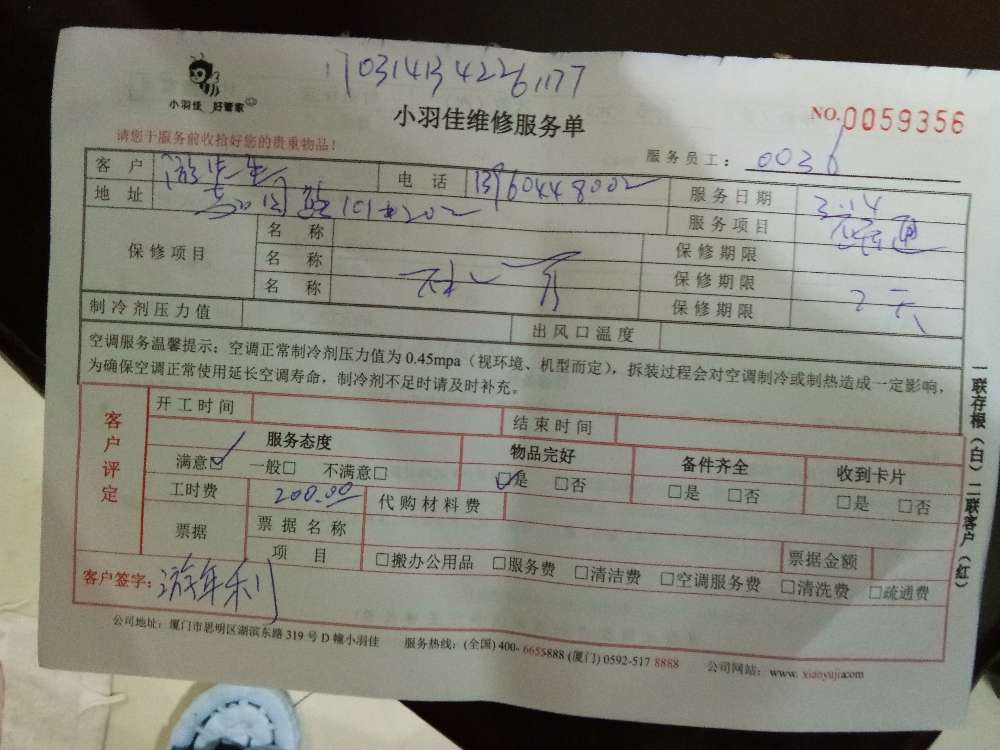 170314134226177
小羽佳 好管家
小羽佳维修服务单
NO.0059356
请您于服务前收拾好您的贵重物品！
服务员工： 0036
客户 游先生 电话 13960448002 服务日期 3.14
地址 202 服务项目 通
保修项目 名称 保修期限
名称 保修期限
名称 保修期限 2天
制冷剂压力值 出风口温度
空调服务温馨提示：空调正常制冷剂压力值为 0.45mpa（视环境、机型而定），拆装过程会对空调制冷或制热造成一定影响，
为确保空调正常使用延长空调寿命，制冷剂不足时请及时补充。
客户评定
开工时间 结束时间
服务态度 物品完好 备件齐全 收到卡片
满意☑ 一般□ 不满意□ ☑是 □否 □是 □否 □是 □否
工时费 200.00 代购材料费
票据 票据名称
项目 □搬办公用品 □服务费 □清洁费 □空调服务费 □清洗费 □疏通费
票据金额
客户签字： 游年利
公司地址：厦门市思明区湖滨东路 319 号 D 幢小羽佳 服务热线：(全国) 400- 6655888 (厦门) 0592-517 8888 公司网站：www. xiaoyujia.com
一联存根（白）二联客户（红）